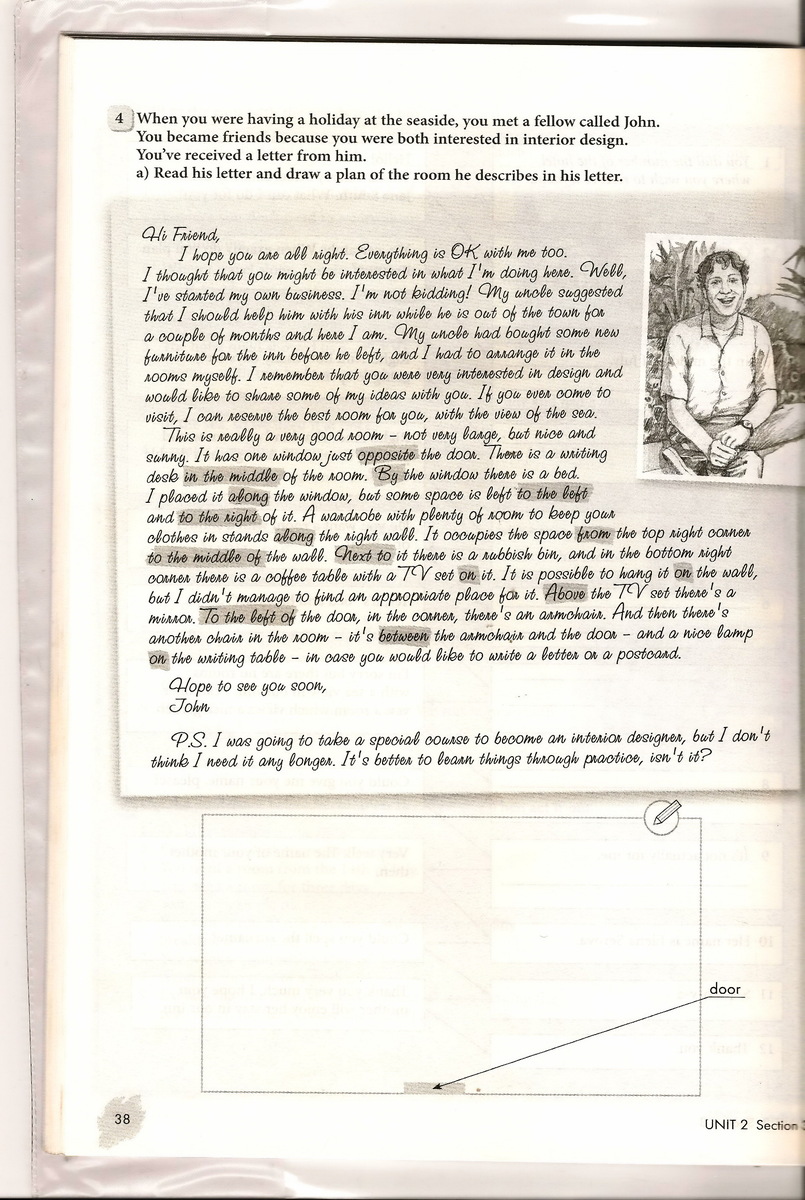 4 When you were having a holiday at the seaside, you met a fellow called John.
You became friends because you were both interested in interior design.
You've received a letter from him.
a) Read his letter and draw a plan of the room he describes in his letter.
Hi Friend,
I hope you are all right. Everything is OK with me too.
I thought that you might be interested in what I'm doing here. Well,
I've started my own business. I'm not kidding! My uncle suggested
that I should help him with his inn while he is out of the town for
a couple of months and here I am. My uncle had bought some new
furniture for the inn before he left, and I had to arrange it in the
rooms myself. I remember that you were very interested in design and
would like to share some of my ideas with you. If you ever come to
visit, I can reserve the best room for you, with the view of the sea.
This is really a very good room – not very large, but nice and
sunny. It has one window just opposite the door. There is a writing
desk in the middle of the room. By the window there is a bed.
I placed it along the window, but some space is left to the left
and to the right of it. A wardrobe with plenty of room to keep your
clothes in stands along the right wall. It occupies the space from the top right corner
to the middle of the wall. Next to it there is a rubbish bin, and in the bottom right
corner there is a coffee table with a TV set on it. It is possible to hang it on the wall,
but I didn't manage to find an appropriate place for it. Above the TV set there's a
mirror. To the left of the door, in the corner, there's an armchair. And then there's
another chair in the room – it's between the armchair and the door – and a nice lamp
on the writing table – in case you would like to write a letter or a postcard.
Hope to see you soon,
John
P.S. I was going to take a special course to become an interior designer, but I don't
think I need it any longer. It's better to learn things through practice, isn't it?
door
38
UNIT 2 Section